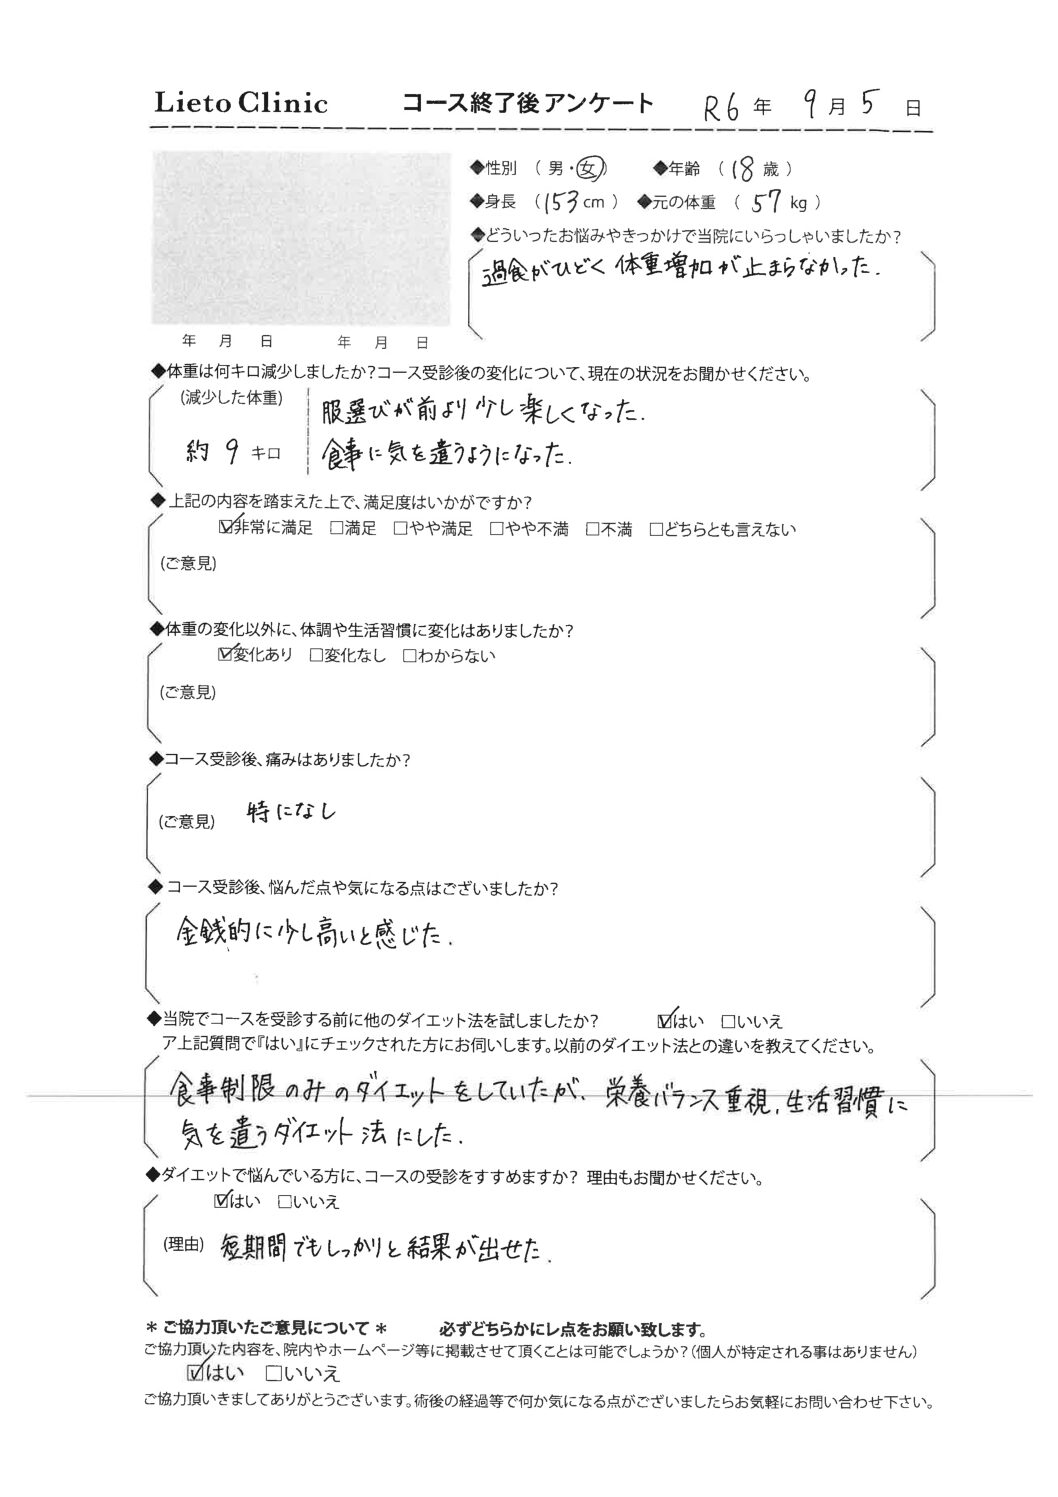 Lieto Clinic コース終了後アンケート R6 年 9 月 5 日
◆性別 （ 男・女） ◆年齢 （ 18 歳 ）
◆身長 （ 153 cm ） ◆元の体重 （ 57 kg ）
◆どういったお悩みやきっかけで当院にいらっしゃいましたか?
過食がひどく 体重増加が止まらなかった.
年 月 日 年 月 日
◆体重は何キロ減少しましたか?コース受診後の変化について、現在の状況をお聞かせください。
(減少した体重) 服選びが前より少し楽しくなった.
約 9 キロ 食事に気を遣うようになった.
◆ 上記の内容を踏まえた上で、満足度はいかがですか?
☑非常に満足 □満足 □やや満足 □やや不満 □不満 □どちらとも言えない
(ご意見)
◆体重の変化以外に、体調や生活習慣に変化はありましたか?
☑変化あり □変化なし □わからない
(ご意見)
◆コース受診後、痛みはありましたか?
(ご意見) 特になし
◆ コース受診後、悩んだ点や気になる点はございましたか?
金銭的に少し高いと感じた.
◆当院でコースを受診する前に他のダイエット法を試しましたか? ☑はい □いいえ
ア上記質問で『はい』にチェックされた方にお伺いします。以前のダイエット法との違いを教えてください。
食事制限のみのダイエットをしていたが、栄養バランス重視,生活習慣に
気を遣うダイエット法にした.
◆ダイエットで悩んでいる方に、コースの受診をすすめますか? 理由もお聞かせください。
☑はい □いいえ
(理由) 短期間でもしっかりと結果が出せた.
＊ ご協力頂いたご意見について ＊ 必ずどちらかにレ点をお願い致します。
ご協力頂いた内容を、院内やホームページ等に掲載させて頂くことは可能でしょうか?(個人が特定される事はありません)
☑はい □いいえ
ご協力頂いきましてありがとうございます。術後の経過等で何か気になる点がございましたらお気軽にお問い合わせ下さい。